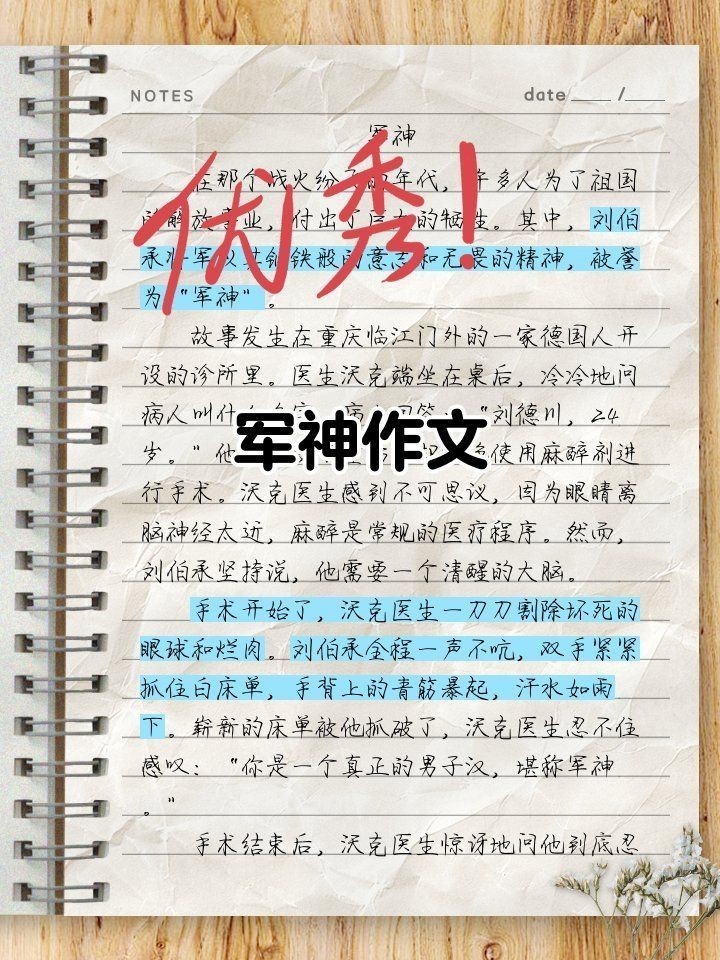 NOTES date ____ /____
军神
在那个战火纷的年代，许多人为了祖国
解放事业，付出了巨大的牺牲。其中，刘伯
承将军以其钢铁般的意志和无畏的精神，被誉
为“军神”。
优秀！
故事发生在重庆临江门外的一家德国人开
设的诊所里。医生沃克端坐在桌后，冷冷地问
病人叫什“刘德川，24
军神作文
岁。"他使用麻醉剂进
行手术。沃克医生感到不可思议，因为眼睛离
脑神经太近，麻醉是常规的医疗程序。然而，
刘伯承坚持说，他需要一个清醒的大脑。
手术开始了，沃克医生一刀刀割除坏死的
眼球和烂肉。刘伯承全程一声不吭，双手紧紧
抓住白床单，手背上的青筋暴起，汗水如雨
下。崭新的床单被他抓破了，沃克医生忍不住
感叹：“你是一个真正的男子汉，堪称军神
。"
手术结束后，沃克医生惊讶地问他到底忍